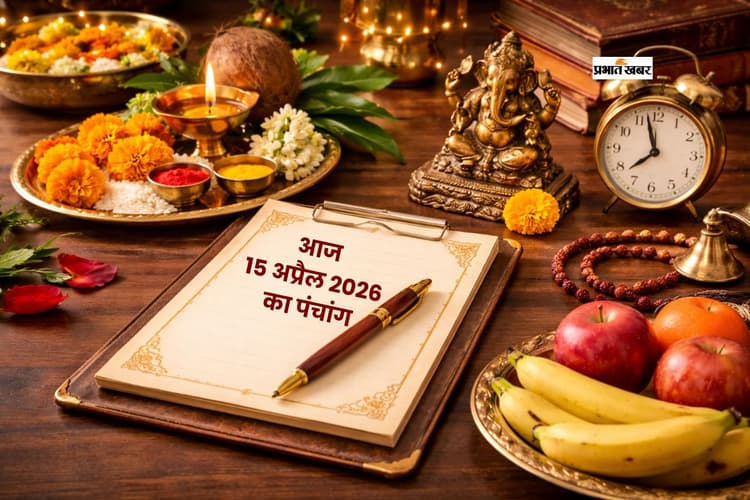 प्रभात खबर
12
1
2
3
4
5
6
7
8
9
10
11
आज
15 अप्रैल 2026
का पंचांग